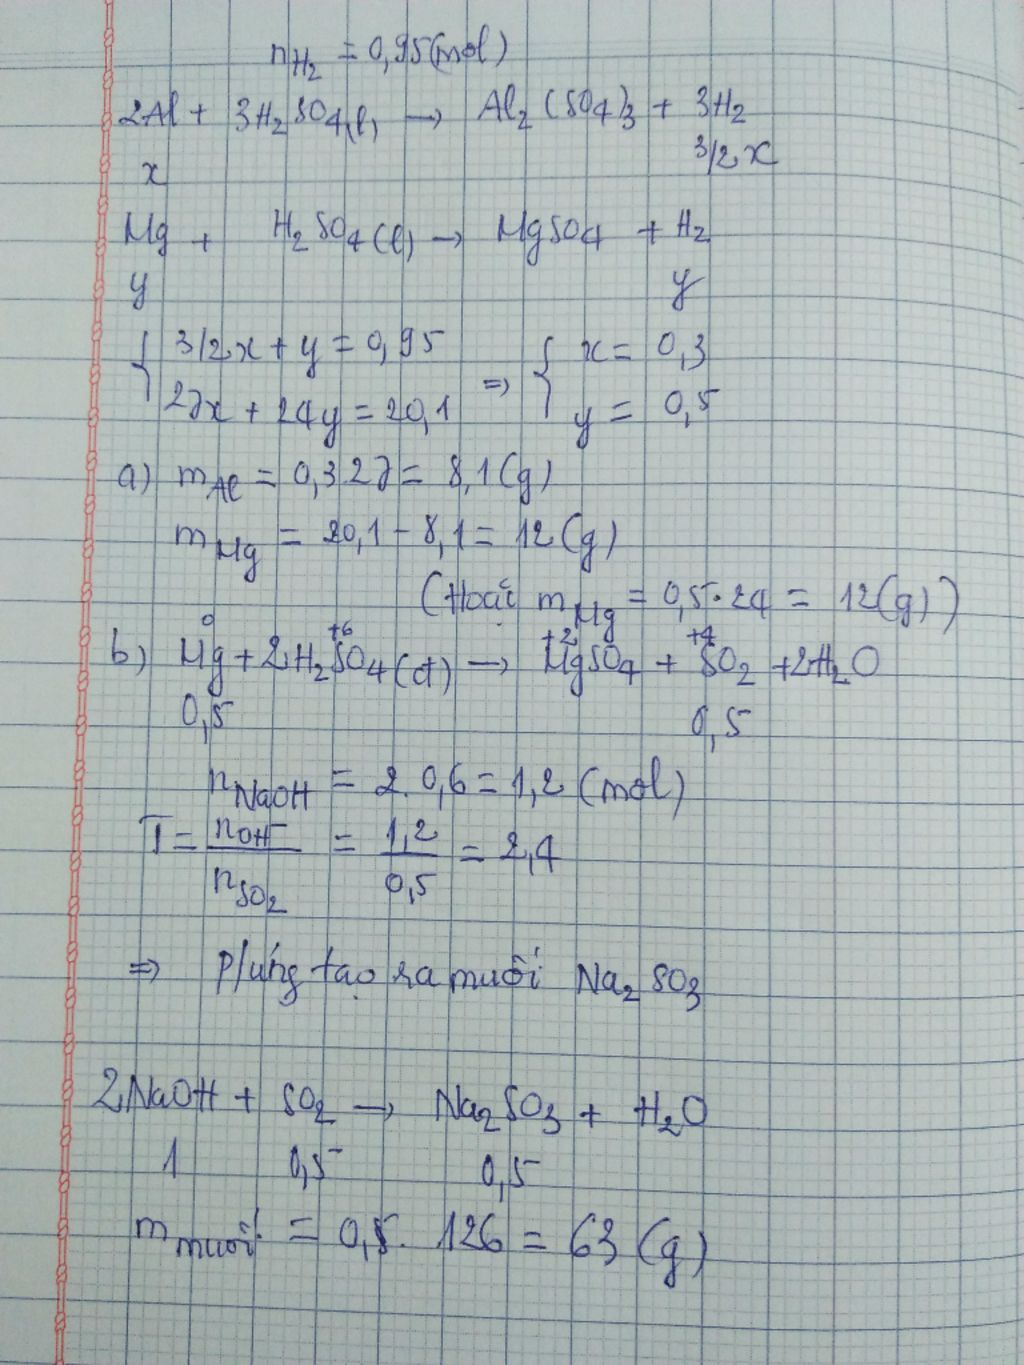 nH2 = 0,95(mol)
2Al + 3H2SO4(l) → Al2(SO4)3 + 3H2
x 3/2x
Mg + H2SO4(l) → MgSO4 + H2
y y
{ 3/2x + y = 0,95 { x = 0,3
27x + 24y = 20,1 ⇒ y = 0,5
a) mAl = 0,3.27 = 8,1(g)
mMg = 20,1 - 8,1 = 12(g)
(Hoặc mMg = 0,5.24 = 12(g))
0 +6 +2 +4
b) Mg + 2H2SO4(đ) → MgSO4 + SO2 + 2H2O
0,5 0,5
nNaOH = 2.0,6 = 1,2 (mol)
T = nOH-/nSO2 = 1,2/0,5 = 2,4
⇒ P/ứng tạo ra muối Na2SO3
2NaOH + SO2 → Na2SO3 + H2O
1 0,5 0,5
mmuối = 0,5. 126 = 63 (g)